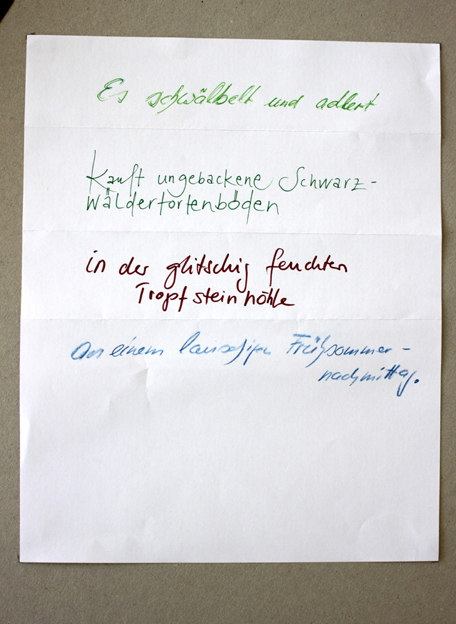 Es schwälbelt und adlert
Kauft ungebackene Schwarz-
wäldertortenböden
in der glitschig feuchten
Tropfsteinhöhle
an einem lauschigen Frühsommer-
nachmittag.